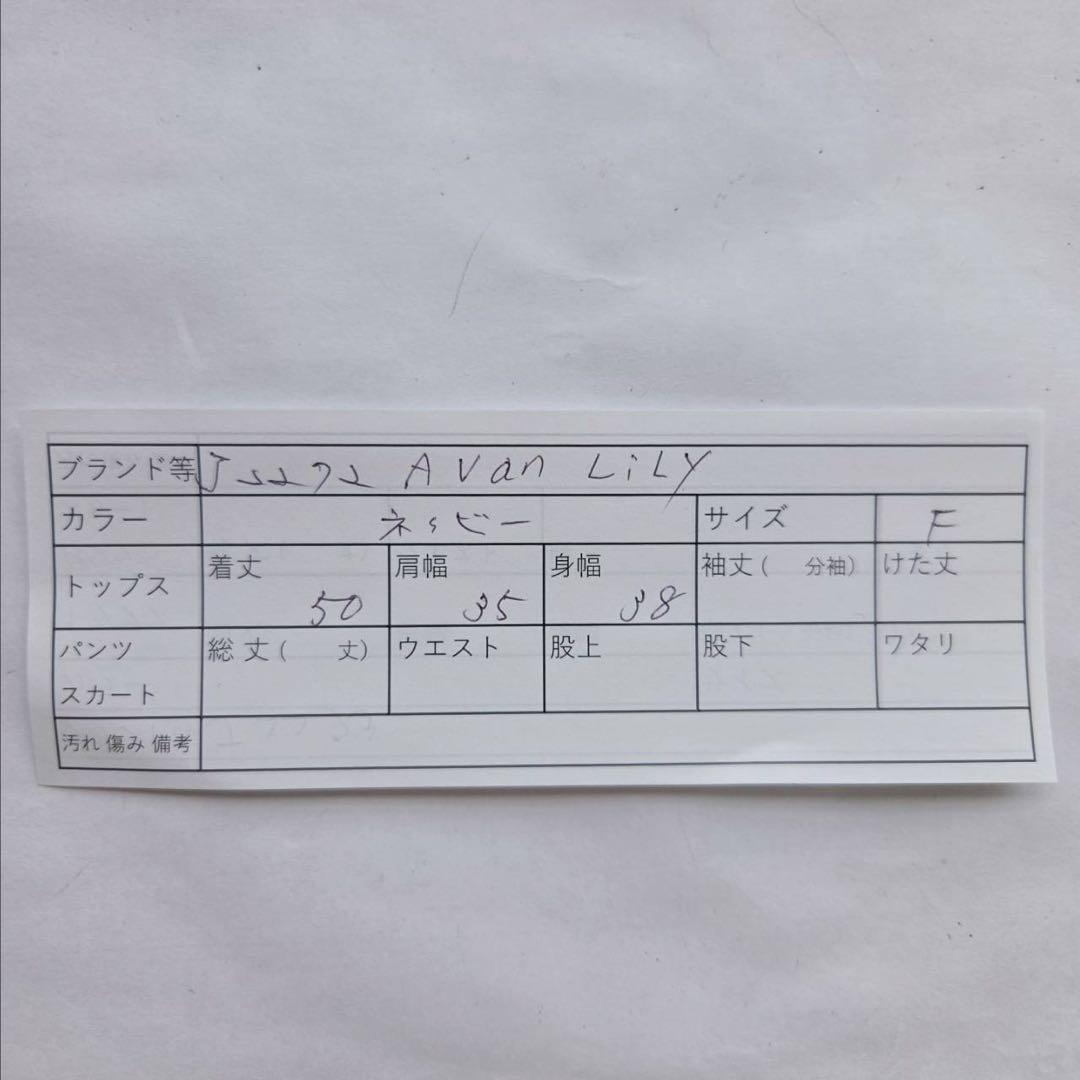 ブランド等 Avan LiLY
カラー ネッビー サイズ F
トップス 着丈 50 肩幅 35 身幅 38 袖丈( 分袖) けた丈
パンツ スカート 総丈( 丈) ウエスト 股上 股下 ワタリ
汚れ 傷み 備考